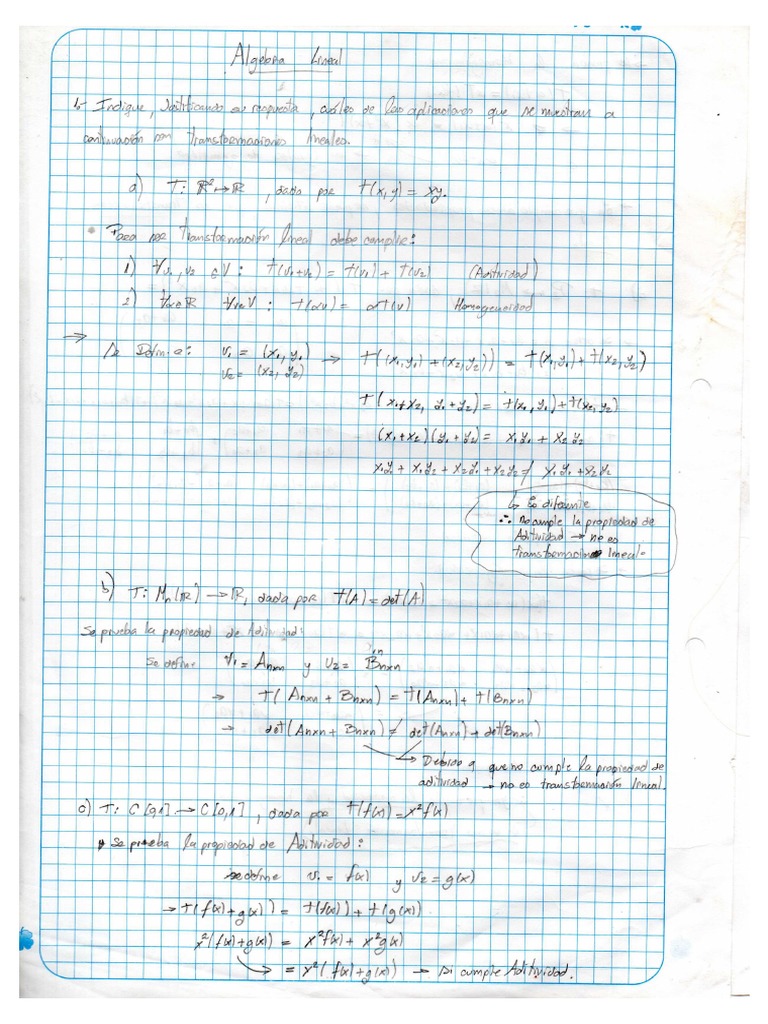 Algebra Lineal
1- Indique, Justificando su respuesta, cuáles de las aplicaciones que se muestran a
continuación son transformaciones lineales.
a) T: ℝ² → ℝ, dada por t(x,y) = xy.
• Para ser transformación lineal debe cumplir:
1) ∀v₁, v₂ ∈ V: t(v₁+v₂) = t(v₁) + t(v₂) (Aditividad)
2) ∀α∈ℝ ∀v∈V: t(αv) = αt(v) Homogeneidad
→ Se Define: v₁ = (x₁, y₁) → t((x₁,y₁) + (x₂,y₂)) = t(x₁,y₁) + t(x₂,y₂)
v₂ = (x₂, y₂)
t(x₁+x₂, y₁+y₂) = t(x₁,y₁) + t(x₂,y₂)
(x₁+x₂)(y₁+y₂) = x₁y₁ + x₂y₂
x₁y₁ + x₁y₂ + x₂y₁ + x₂y₂ ≠ x₁y₁ + x₂y₂
↳ Es diferente
∴ No cumple la propiedad de
Aditividad → no es
transformación lineal
b) T: Mn(ℝ) → ℝ, dada por t(A) = det(A)
Se prueba la propiedad de Aditividad:
Se define V₁ = Anxn y V₂ = Bnxn
→ t(Anxn + Bnxn) = t(Anxn) + t(Bnxn)
→ det(Anxn + Bnxn) ≠ det(Anxn) + det(Bnxn)
→ Debido a que no cumple la propiedad de
aditividad → no es transformación lineal.
c) T: C[0,1] → C[0,1], dada por t(f(x)) = x²f(x)
Se prueba la propiedad de Aditividad:
se define v₁ = f(x) y v₂ = g(x)
→ t(f(x)+g(x)) = t(f(x)) + t(g(x))
x²(f(x)+g(x)) = x²f(x) + x²g(x)
= x²(f(x)+g(x)) → Si cumple Aditividad.